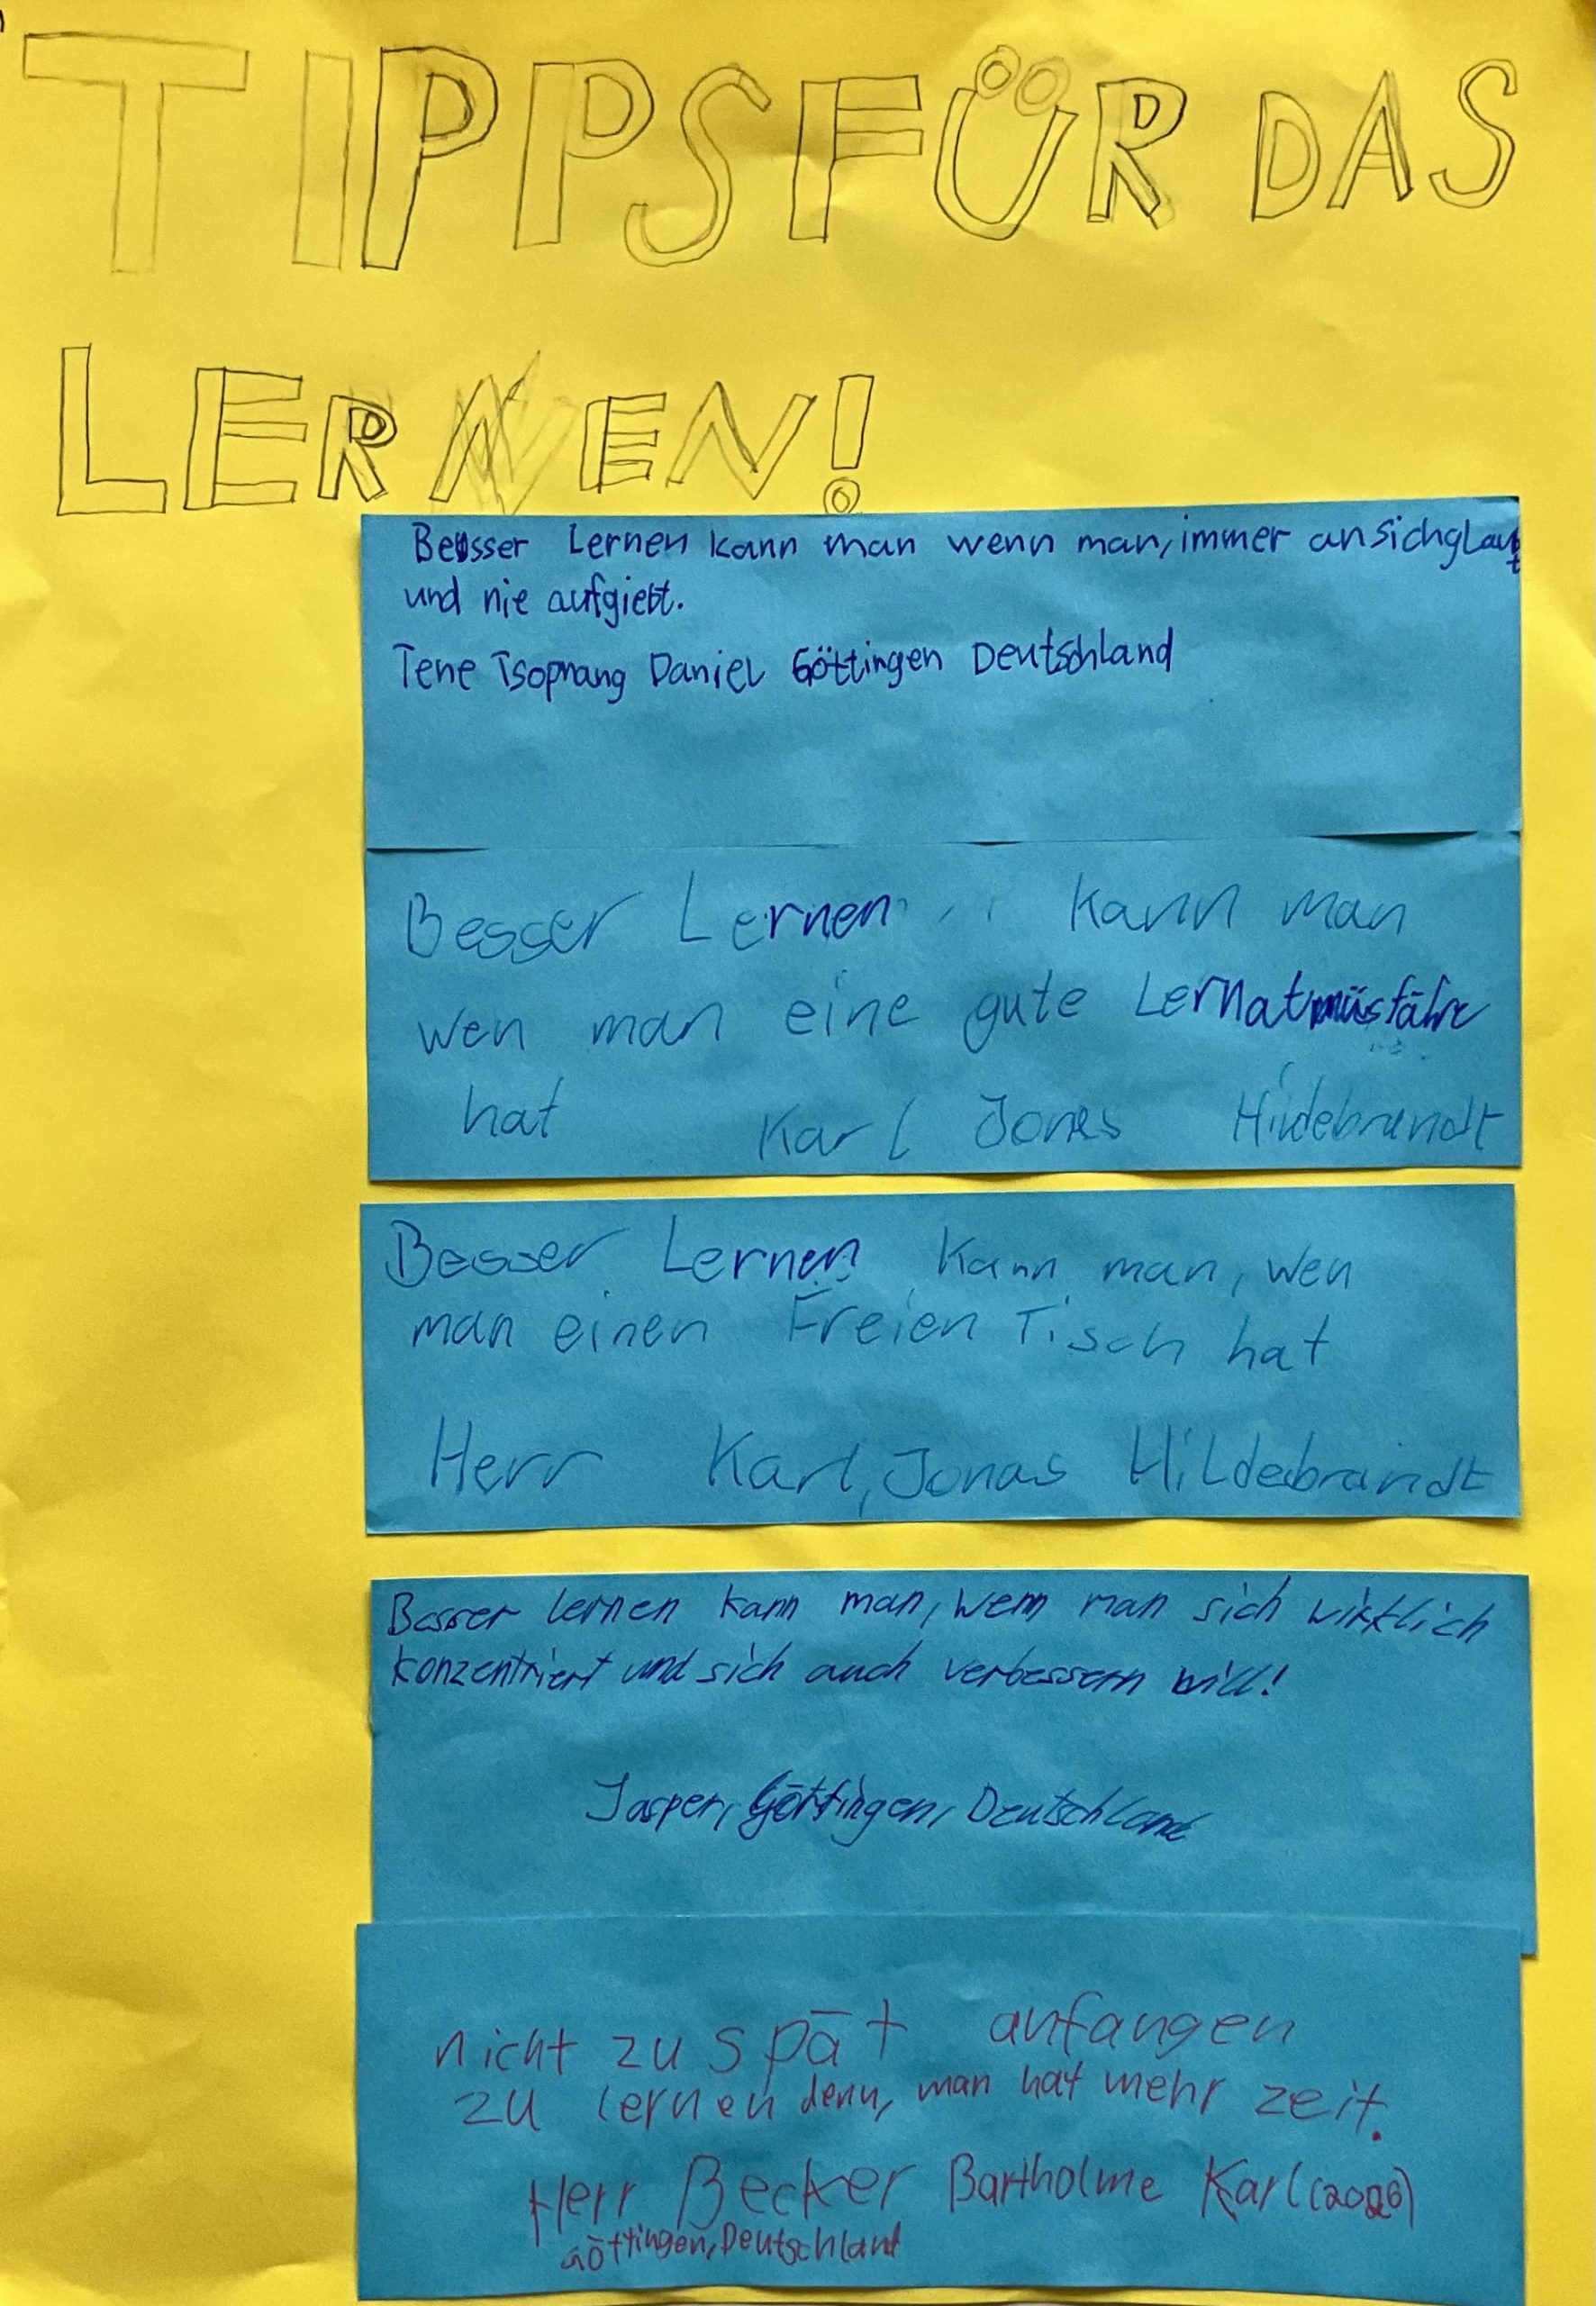 TIPPS FÜR DAS
LERNEN!
Besser Lernen kann man wenn man, immer an sich glaubt
und nie aufgiebt.
Tene Daniel Göttingen Deutschland
Besser Lernen kann man
wen man eine gute Lernatmüsfähre
hat Karl Jonas Hildebrandt
Besser Lernen kann man, wen
man einen Freien Tisch hat
Herr Karl, Jonas Hildebrandt
Besser lernen kann man, wenn man sich wirklich
konzentriert und sich auch verbessern will!
Jasper, Göttingen, Deutschland
nicht zu spät anfangen
zu lernen denn, man hat mehr zeit.
Herr Becker Bartholme Karl (2026)
Göttingen, Deutschland